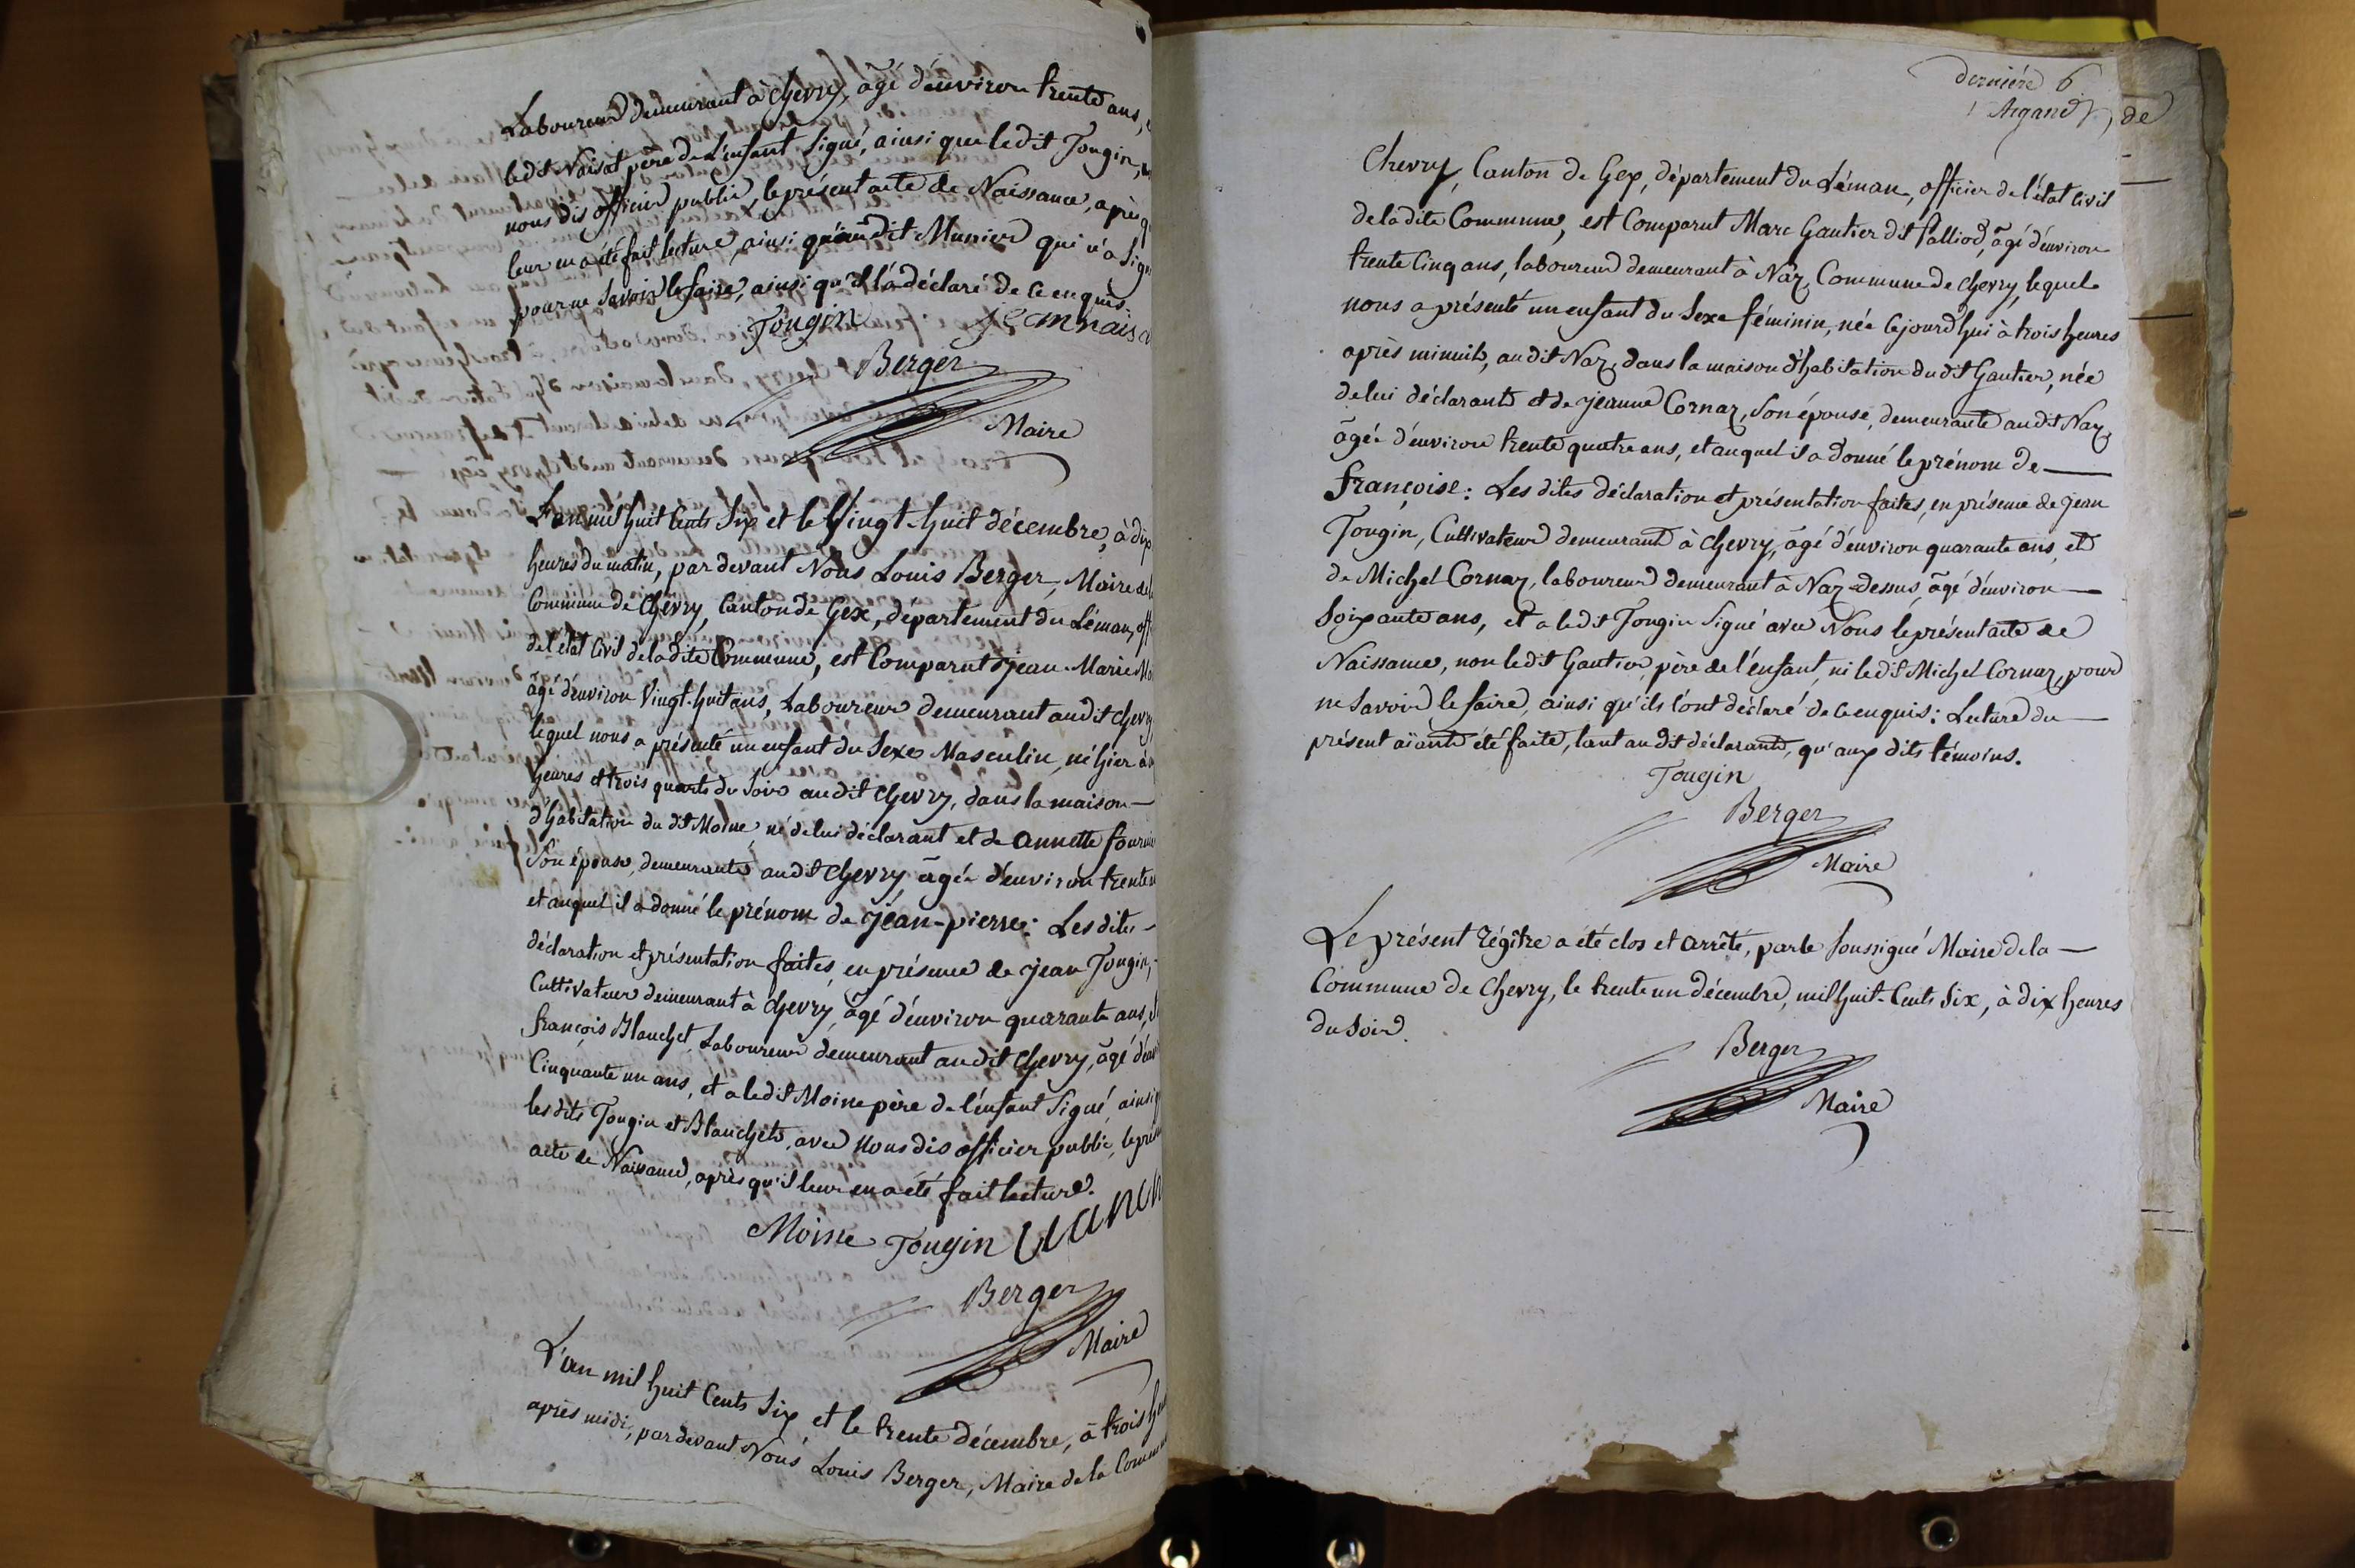 Laboureur demeurant à Chevry, âgé d'environ trente ans,
ledit Naisat père de l'enfant Signé, ainsi que ledit Tougin,
nous dis officier public, le présent acte de Naissance, après
leur en a été fait lecture, ainsi qu'au dit Munier qui n'a
pour ne Savoir le faire, ainsi qu'il l'a déclaré de ce enquis.
Tougin
Berger
Maire
L'an mil huit Cents Six et le Vingt-huit décembre, à dix
heures du matin, par devant Nous Louis Berger, Maire de
Commune de Chevry, Canton de Gex, département du Léman,
de l'état Civil de la dite Commune, est Comparut Jean-Marie
âgé d'environ Vingt-huit ans, Laboureur demeurant audit Chevry,
lequel nous a présenté un enfant du Sexe Masculin, né hier à
heures et trois quarts du Soir audit Chevry, dans la maison
d'habitation du dit Moine, né de lui déclarant et de Annette
Son épouse, demeurante audit Chevry, âgée d'environ trente
et auquel il a donné le prénom de Jean-pierre: Les dites
déclaration et présentation faites, en présence de Jean Tougin,
Cultivateur demeurant à Chevry, âgé d'environ quarante ans,
françois Blanchet, Laboureur demeurant audit Chevry, âgé
Cinquante un ans, et a ledit Moine père de l'enfant Signé ainsi
les dits Tougin et Blanchet, avec Nous dis officier public,
acte de Naissance, après qu'il leur en a été fait lecture.
Moine Tougin
Berger
Maire
L'an mil huit Cents Six, et le trente décembre, à trois
après midi, par devant Nous Louis Berger, Maire de la
dernière 6
Argand
de
Chevry, Canton de Gex, département du Léman, officier de l'état Civil
de la dite Commune, est Comparut Marc Gautier dit Palliod, âgé d'environ
trente Cinq ans, laboureur demeurant à Naz, Commune de Chevry, lequel
nous a présenté un enfant du Sexe féminin, née Cejourd'hui à trois heures
après minuit, au dit Naz, dans la maison d'habitation dudit Gautier, née
de lui déclarant et de Jeanne Cornaz, Son épouse, demeurante audit Naz,
âgée d'environ trente quatre ans, et auquel il a donné le prénom de
Françoise: Les dites déclaration et présentation faites, en présence de Jean
Tougin, Cultivateur demeurant à Chevry, âgé d'environ quarante ans, et
de Michel Cornaz, laboureur demeurant à Naz-dessus, âgé d'environ
Soixante ans, et a ledit Tougin Signé avec Nous le présent acte de
Naissance, non ledit Gautier, père de l'enfant, ni ledit Michel Cornaz, pour
ne Savoir le faire, ainsi qu'ils l'ont déclaré de ce enquis: Lecture du
présent aïant été faite, tant au dit déclarant, qu'aux dits témoins.
Tougin
Berger
Maire
Le présent régître a été clos et arrêté, par le Soussigné Maire de la
Commune de Chevry, le trente un décembre, mil huit-Cents Six, à dix heures
du Soir.
Berger
Maire